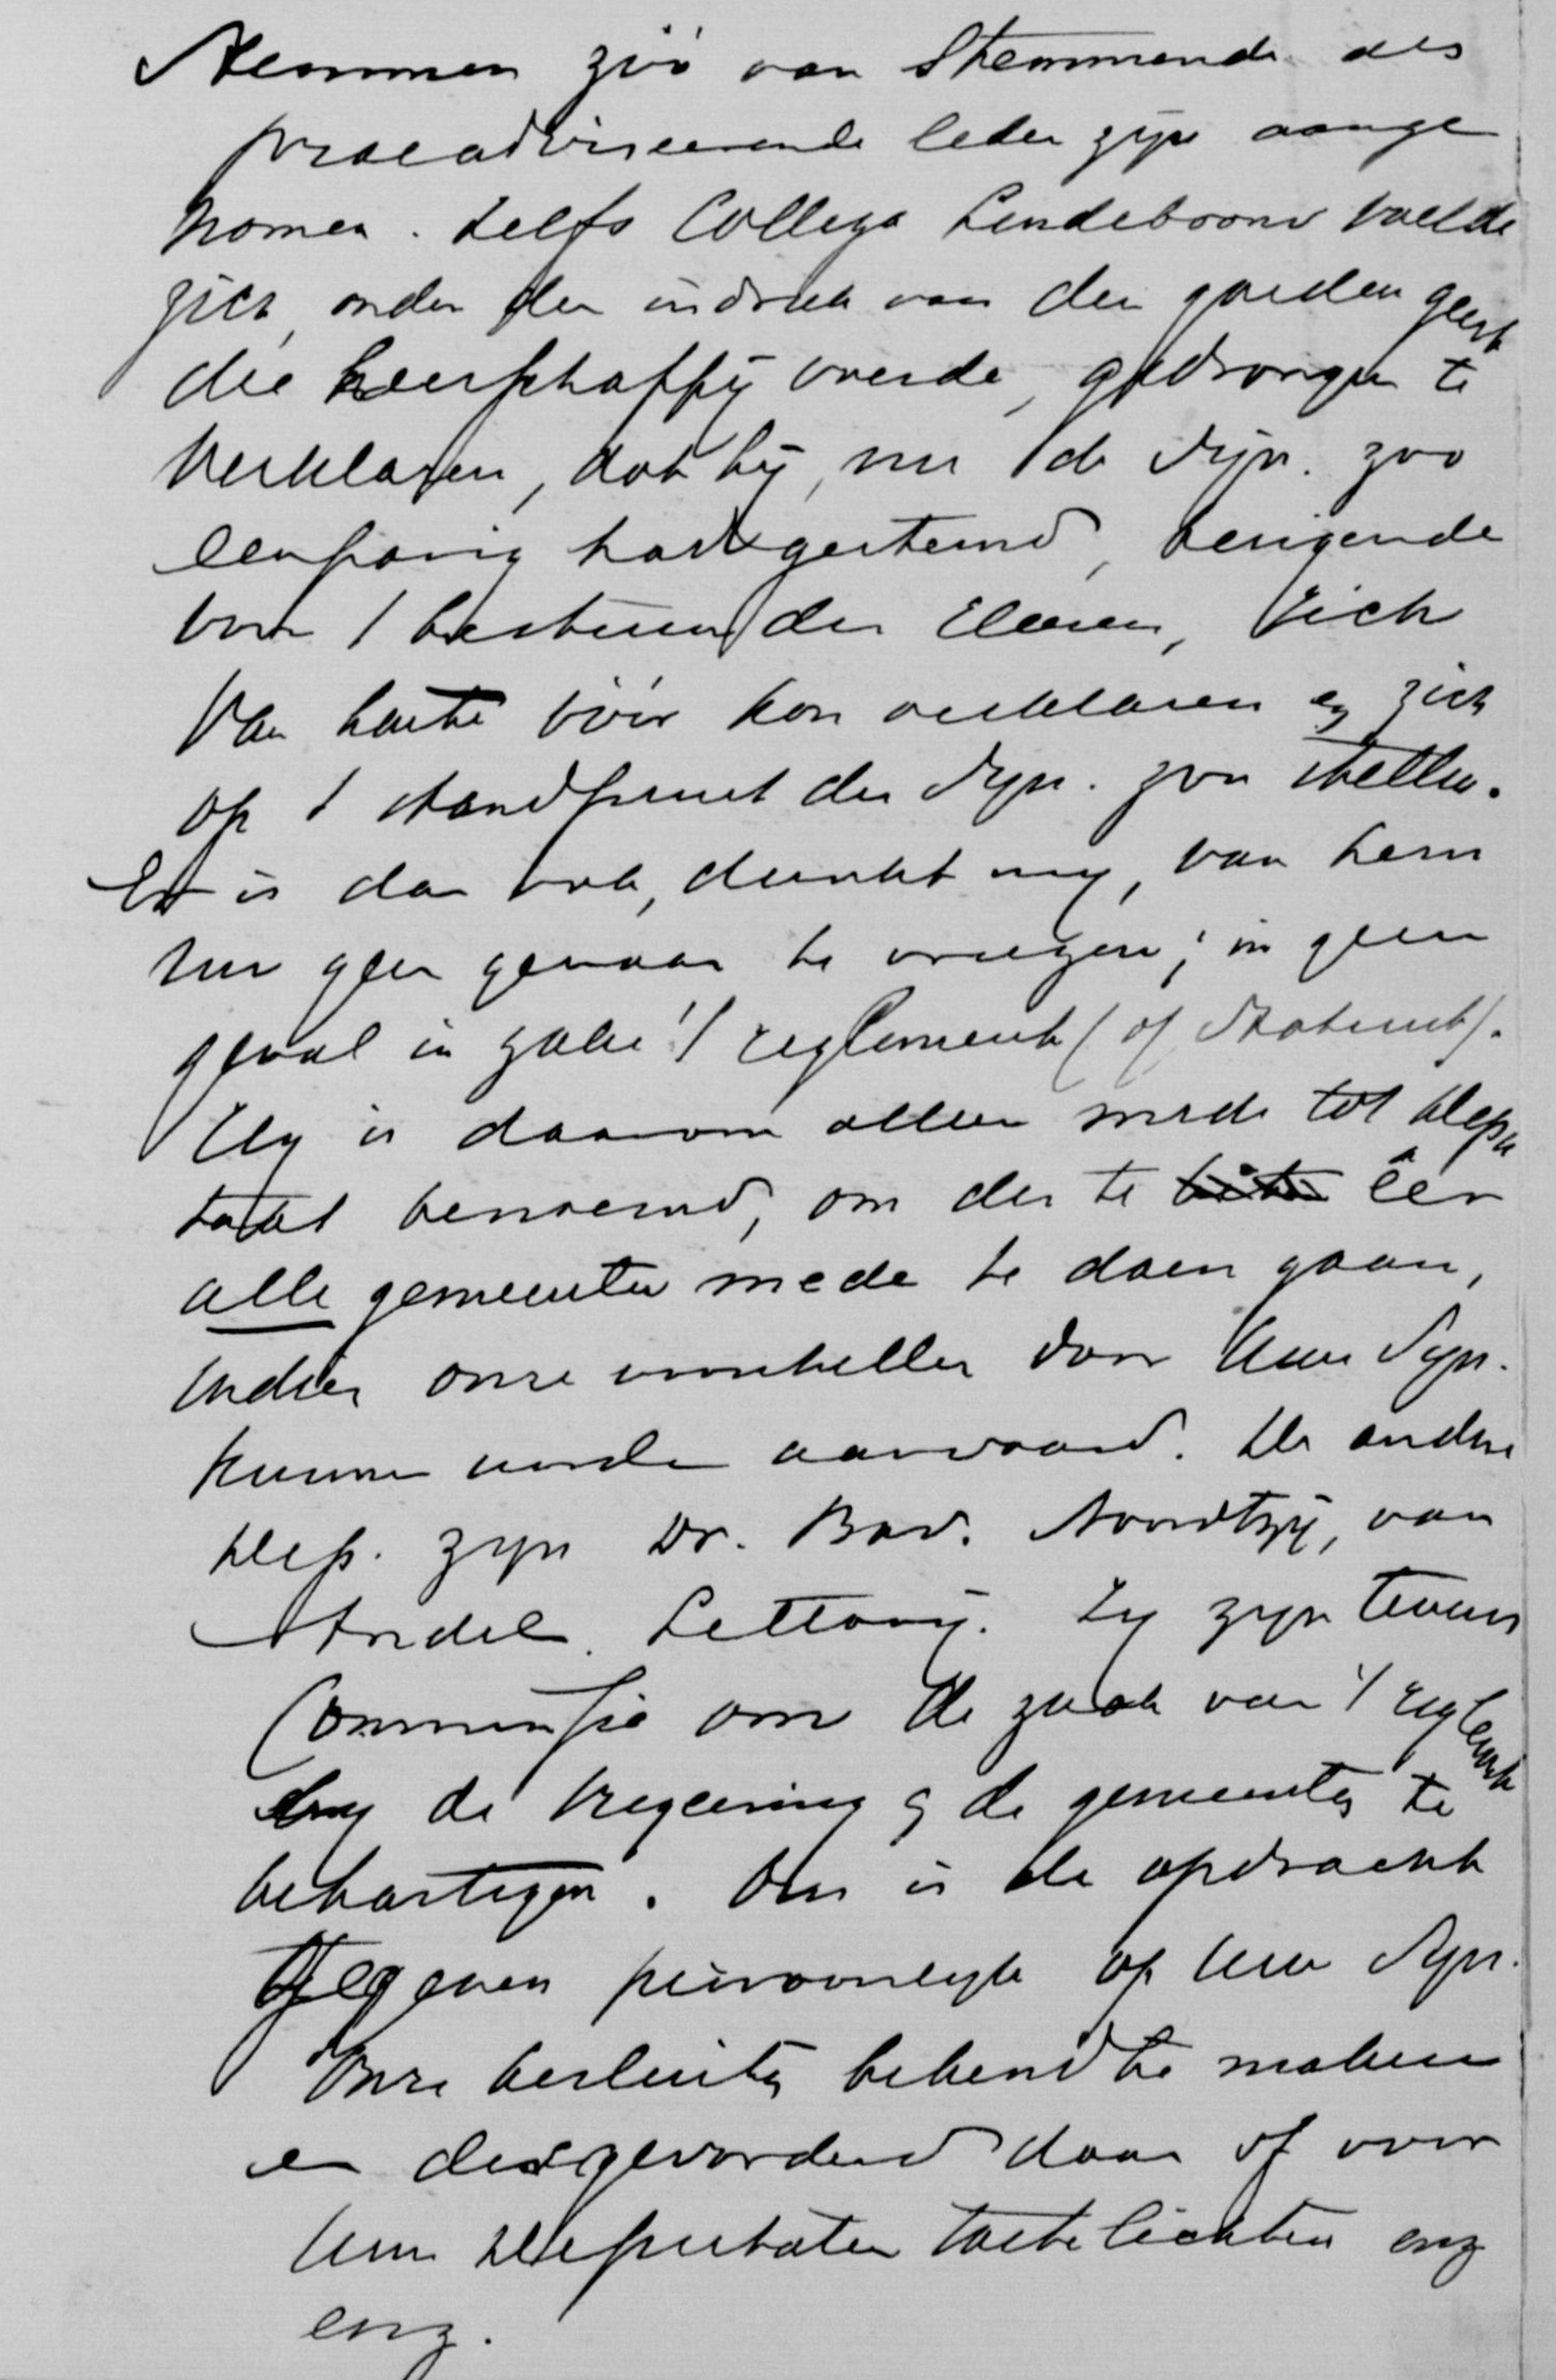 stemmen zoo van stemmende als
praeadviseerende leden zijn aange
nomen. Zelfs Collega Lindeboom voelde
zich, onder den indruk van den goeden geest
die heerschappij voerde, gedrongen te
verklaren, dat hij, nu de Syn. zoo
eenparig had gestemd,
voor 't bestuur der kerken, zich
van harte vóór kon verklaren en zich
op 't standpunt der Syn. zou stellen.
Er is dan ook, dunkt mij, van hem
nu geen gevaar te vreezen; in geen
geval in zake 't reglement (of Statuut).
Hij is daarom alleen mede tot depu
taat benoemd, om des te eer
alle gemeenten mede te doen gaan,
indien onze voorstellen door Uwe Syn.
kunnen worden aanvaard. De andere
dep. zijn Dr. Bav. Noordtzij, van
Andel. Littooij. Zij zijn tevens
Commissie om de zaak van 't reglement
bij de regeering en de gemeenten te
behartigen. Ons is de opdracht
gegeven persoonlijk op Uwe Syn.
onze besluiten bekend te maken
en desgevorderd daar of voor
Uwe Deputaten toe te lichten enz
enz.